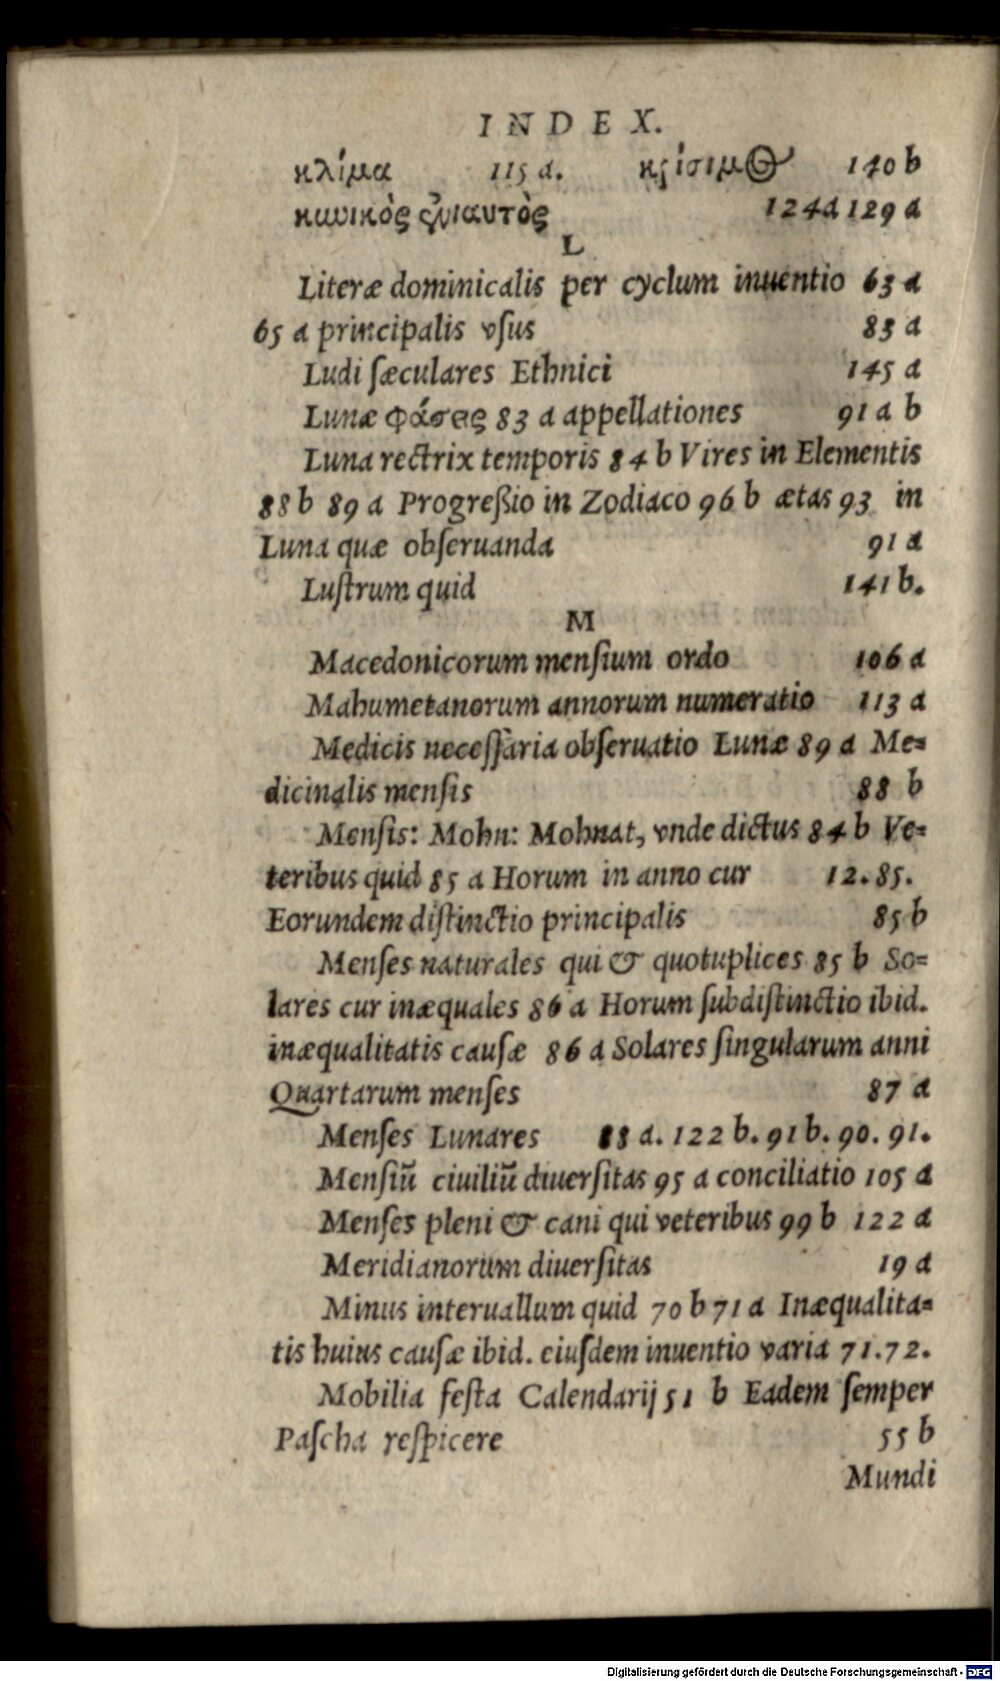 INDEX.
κλίμα 115 a. κρίσιμος 140 b
κωνικὸς ἐνιαυτὸς 124a 129 a
L
Literæ dominicalis per cyclum inuentio 63 a
65 a principalis vſus 83 a
Ludi ſæculares Ethnici 145 a
Lunæ φάσεις 83 a appellationes 91 a b
Luna rectrix temporis 84 b Vires in Elementis
88 b 89 a Progreßio in Zodiaco 96 b ætas 93 in
Luna quæ obſeruanda 91 a
Luſtrum quid 141 b.
M
Macedonicorum menſium ordo 106 a
Mahumetanorum annorum numeratio 113 a
Medicis neceſſaria obſeruatio Lunæ 89 a Me=
dicinalis menſis 88 b
Menſis: Mohn: Mohnat, vnde dictus 84 b Ve=
teribus quid 85 a Horum in anno cur 12.85.
Eorundem diſtinctio principalis 85 b
Menſes naturales qui & quotuplices 85 b So=
lares cur inæquales 86 a Horum ſubdiſtinctio ibid.
inæqualitatis cauſæ 86 a Solares ſingularum anni
Quartarum menſes 87 a
Menſes Lunares 88 a. 122 b. 91 b. 90. 91.
Menſiū ciuiliū diuerſitas 95 a conciliatio 105 a
Menſes pleni & cani qui veteribus 99 b 122 a
Meridianorum diuerſitas 19 a
Minus interuallum quid 70 b 71 a Inæqualita=
tis huius cauſæ ibid. eiuſdem inuentio varia 71.72.
Mobilia feſta Calendarij 51 b Eadem ſemper
Paſcha reſpicere 55 b
Mundi
Digitalisierung gefördert durch die Deutsche Forschungsgemeinschaft - DFG